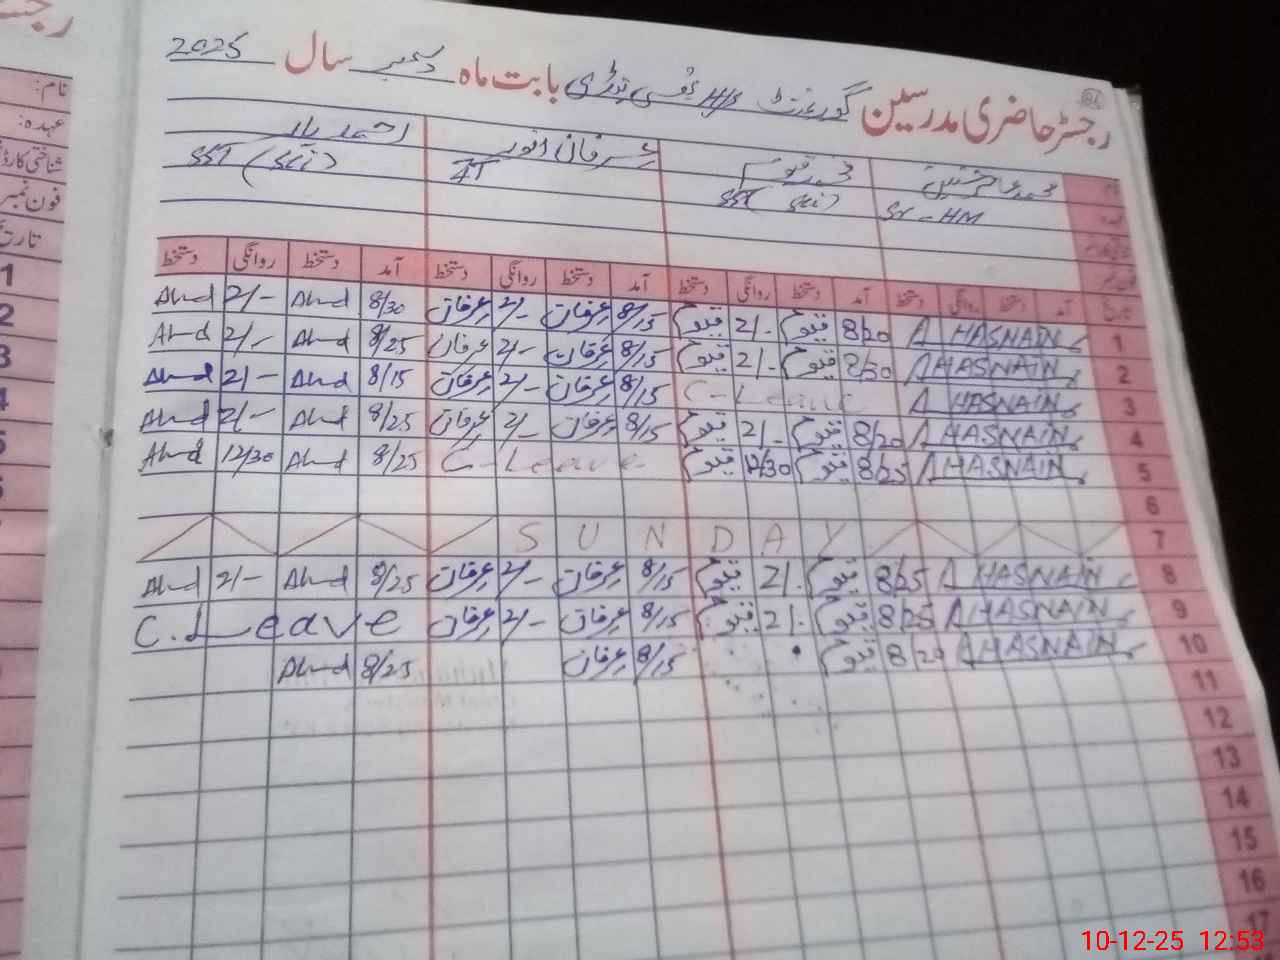 رجسٹر حاضری مدرسین گورنمنٹ H/S بابت ماہ دسمبر سال 2025
محمد قیوم عرفان انور احمد یار
Sr-HM SST (Sci) AT SST (Sci)
تاریخ آمد دستخط روانگی دستخط آمد دستخط روانگی دستخط آمد دستخط روانگی دستخط آمد دستخط روانگی دستخط
1 A HASNAIN 8/20 قیوم 2/- قیوم 8/15 عرفان 2/- عرفان 8/30 Ahmd 2/- Ahmd
2 A HASNAIN 8/30 قیوم 2/- قیوم 8/15 عرفان 2/- عرفان 8/25 Ahmd 2/- Ahmd
3 A HASNAIN C-Leave 8/15 عرفان 2/- عرفان 8/15 Ahmd 2/- Ahmd
4 A HASNAIN 8/20 قیوم 2/- قیوم 8/15 عرفان 2/- عرفان 8/25 Ahmd 2/- Ahmd
5 A HASNAIN 8/25 قیوم 12/30 قیوم C-Leave 8/25 Ahmd 12/30 Ahmd
6
7 SUNDAY
8 A HASNAIN 8/25 قیوم 2/- قیوم 8/15 عرفان 2/- عرفان 8/25 Ahmd 2/- Ahmd
9 A HASNAIN 8/25 قیوم 2/- قیوم 8/15 عرفان 2/- عرفان C.Leave
10 A HASNAIN 8/20 قیوم 8/15 عرفان 8/25 Ahmd
11
12
13
14
15
16
17
نام:
عہدہ:
شناختی کارڈ
فون نمبر
تاریخ
1
2
3
4
5
10-12-25 12:53